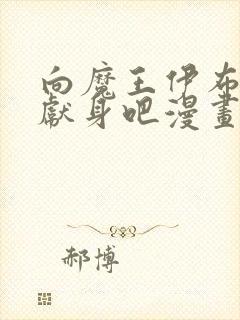 向魔王伊布
獻身吧漫畫
郝博